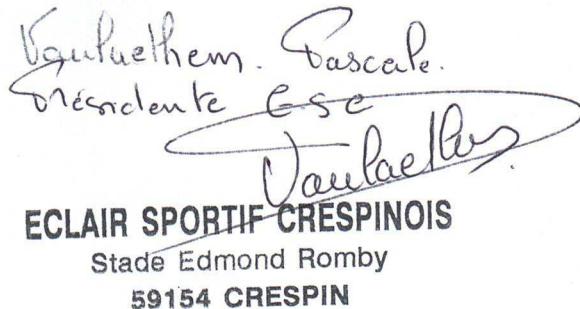 Vanlaethem. Pascale.
Présidente ESC
Vanlaethem
ECLAIR SPORTIF CRESPINOIS
Stade Edmond Romby
59154 CRESPIN